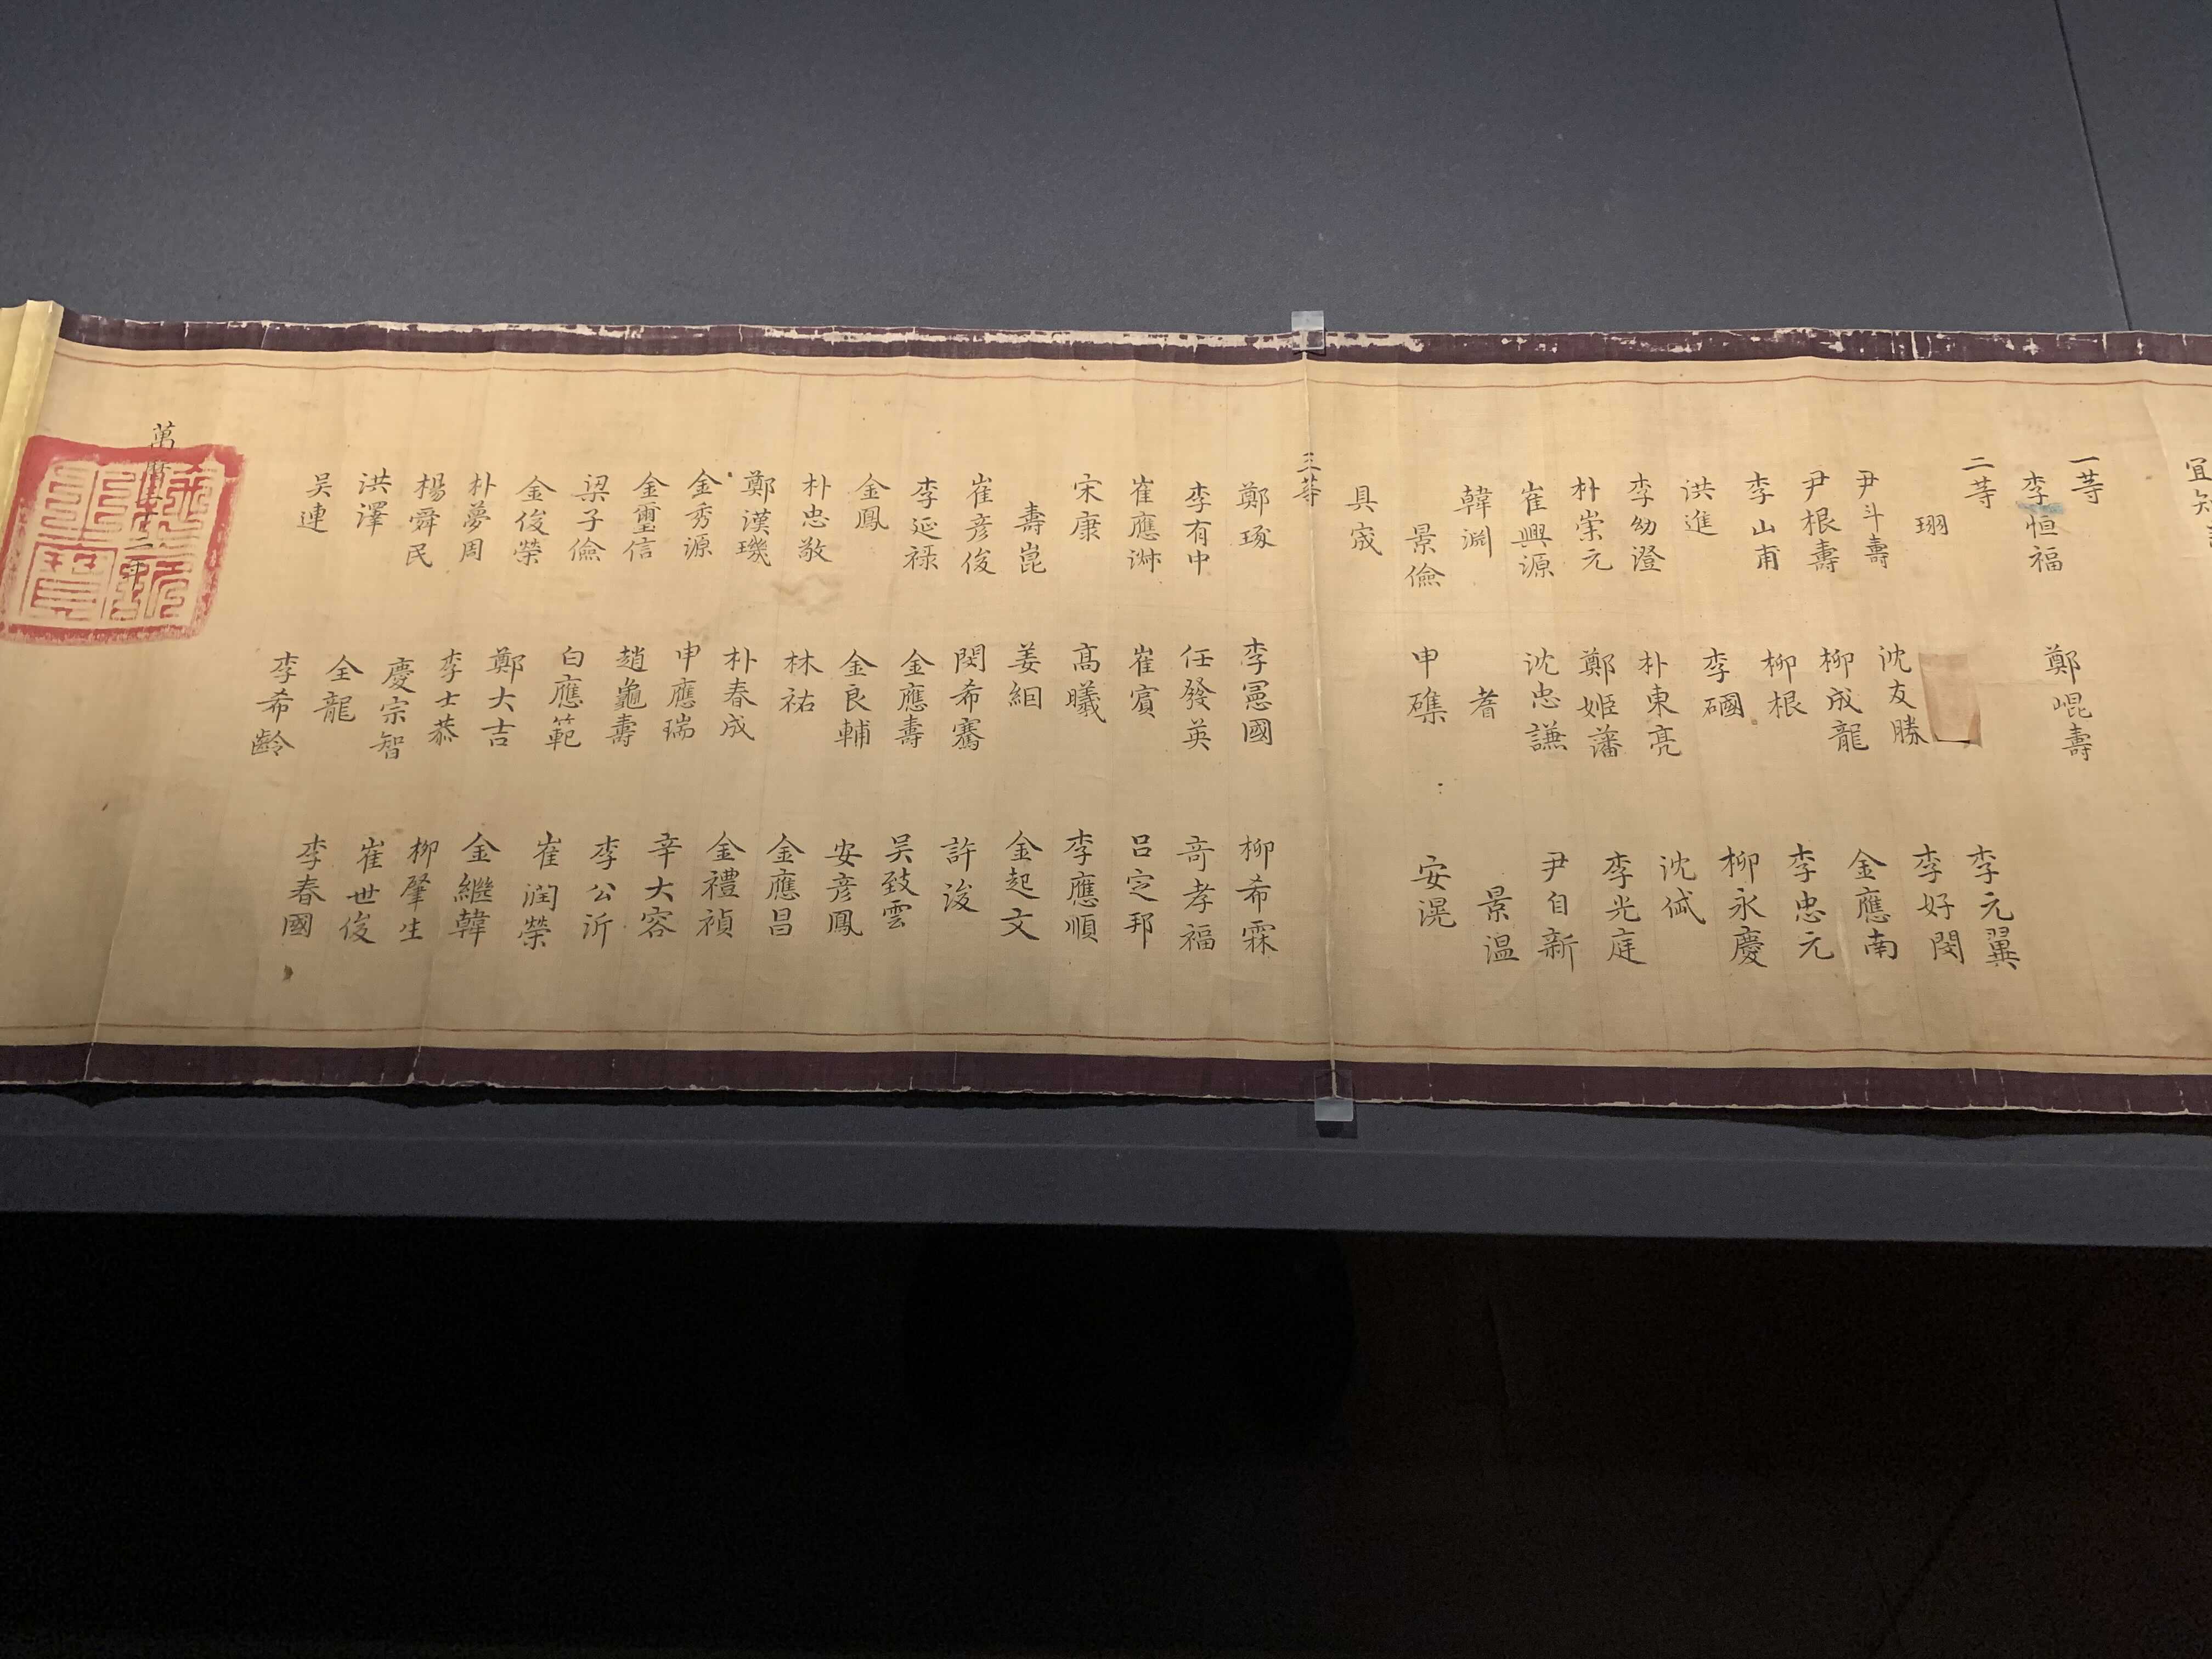 宜知
一等
李恒福
鄭崐壽
二等
李元翼
珝
李好閔
尹斗壽
沈友勝
金應南
尹根壽
柳成龍
李忠元
李山甫
柳根
柳永慶
洪進
李𥕏
沈岱
李幼澄
朴東亮
李光庭
朴崇元
鄭姬藩
尹自新
崔興源
沈忠謙
韓淵
耆
景温
景儉
申磼
安滉
具宬
三等
鄭琢
李憲國
柳希霖
李有中
任發英
奇孝福
崔應淑
崔賓
呂定邦
宋康
高曦
李應順
壽崑
姜絪
金起文
崔彦俊
閔希騫
許浚
李延祿
金應壽
吴致雲
金鳳
金良輔
安彦鳳
朴忠敬
林祐
金應昌
鄭漢璣
朴春成
金禮禎
金秀源
申應瑞
辛大容
金璽信
趙龜壽
李公沂
梁子儉
白應範
崔潤榮
金俊榮
鄭大吉
金繼韓
朴夢周
李士恭
柳肇生
楊舜民
慶宗智
崔世俊
洪澤
全龍
李春國
吴連
李希齡
萬曆三十二年